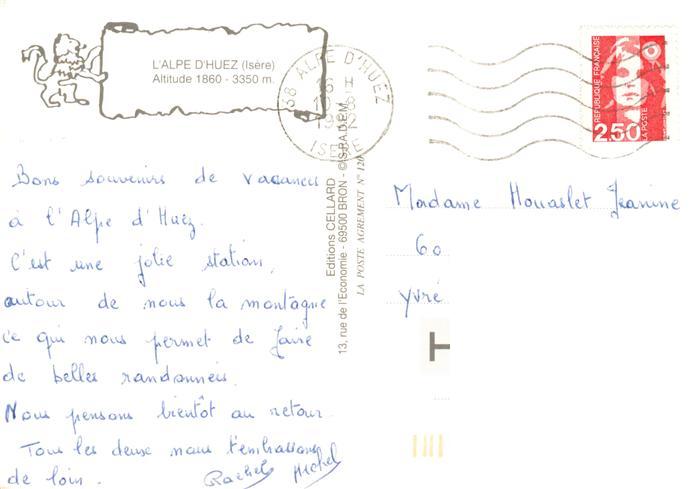 L'ALPE D'HUEZ (Isère)
Altitude 1860 - 3350 m.
38 ALPE D'HUEZ
ISERE
REPUBLIQUE FRANÇAISE
2,50
LA POSTE
Bons souvenirs de vacances
à l'Alpe d'Huez.
C'est une jolie station,
autour de nous la montagne
ce qui nous permet de faire
de belles randonnées.
Nous pensons bientôt au retour.
Tous les deux nous t'embrassons
de loin.
Rachel Michel
Editions CELLARD
13, rue de l'Economie - 69500 BRON - © S.P.A.D.E.M.
LA POSTE AGREMENT N° 120
Madame Houaslet Jeanine
60
yvré